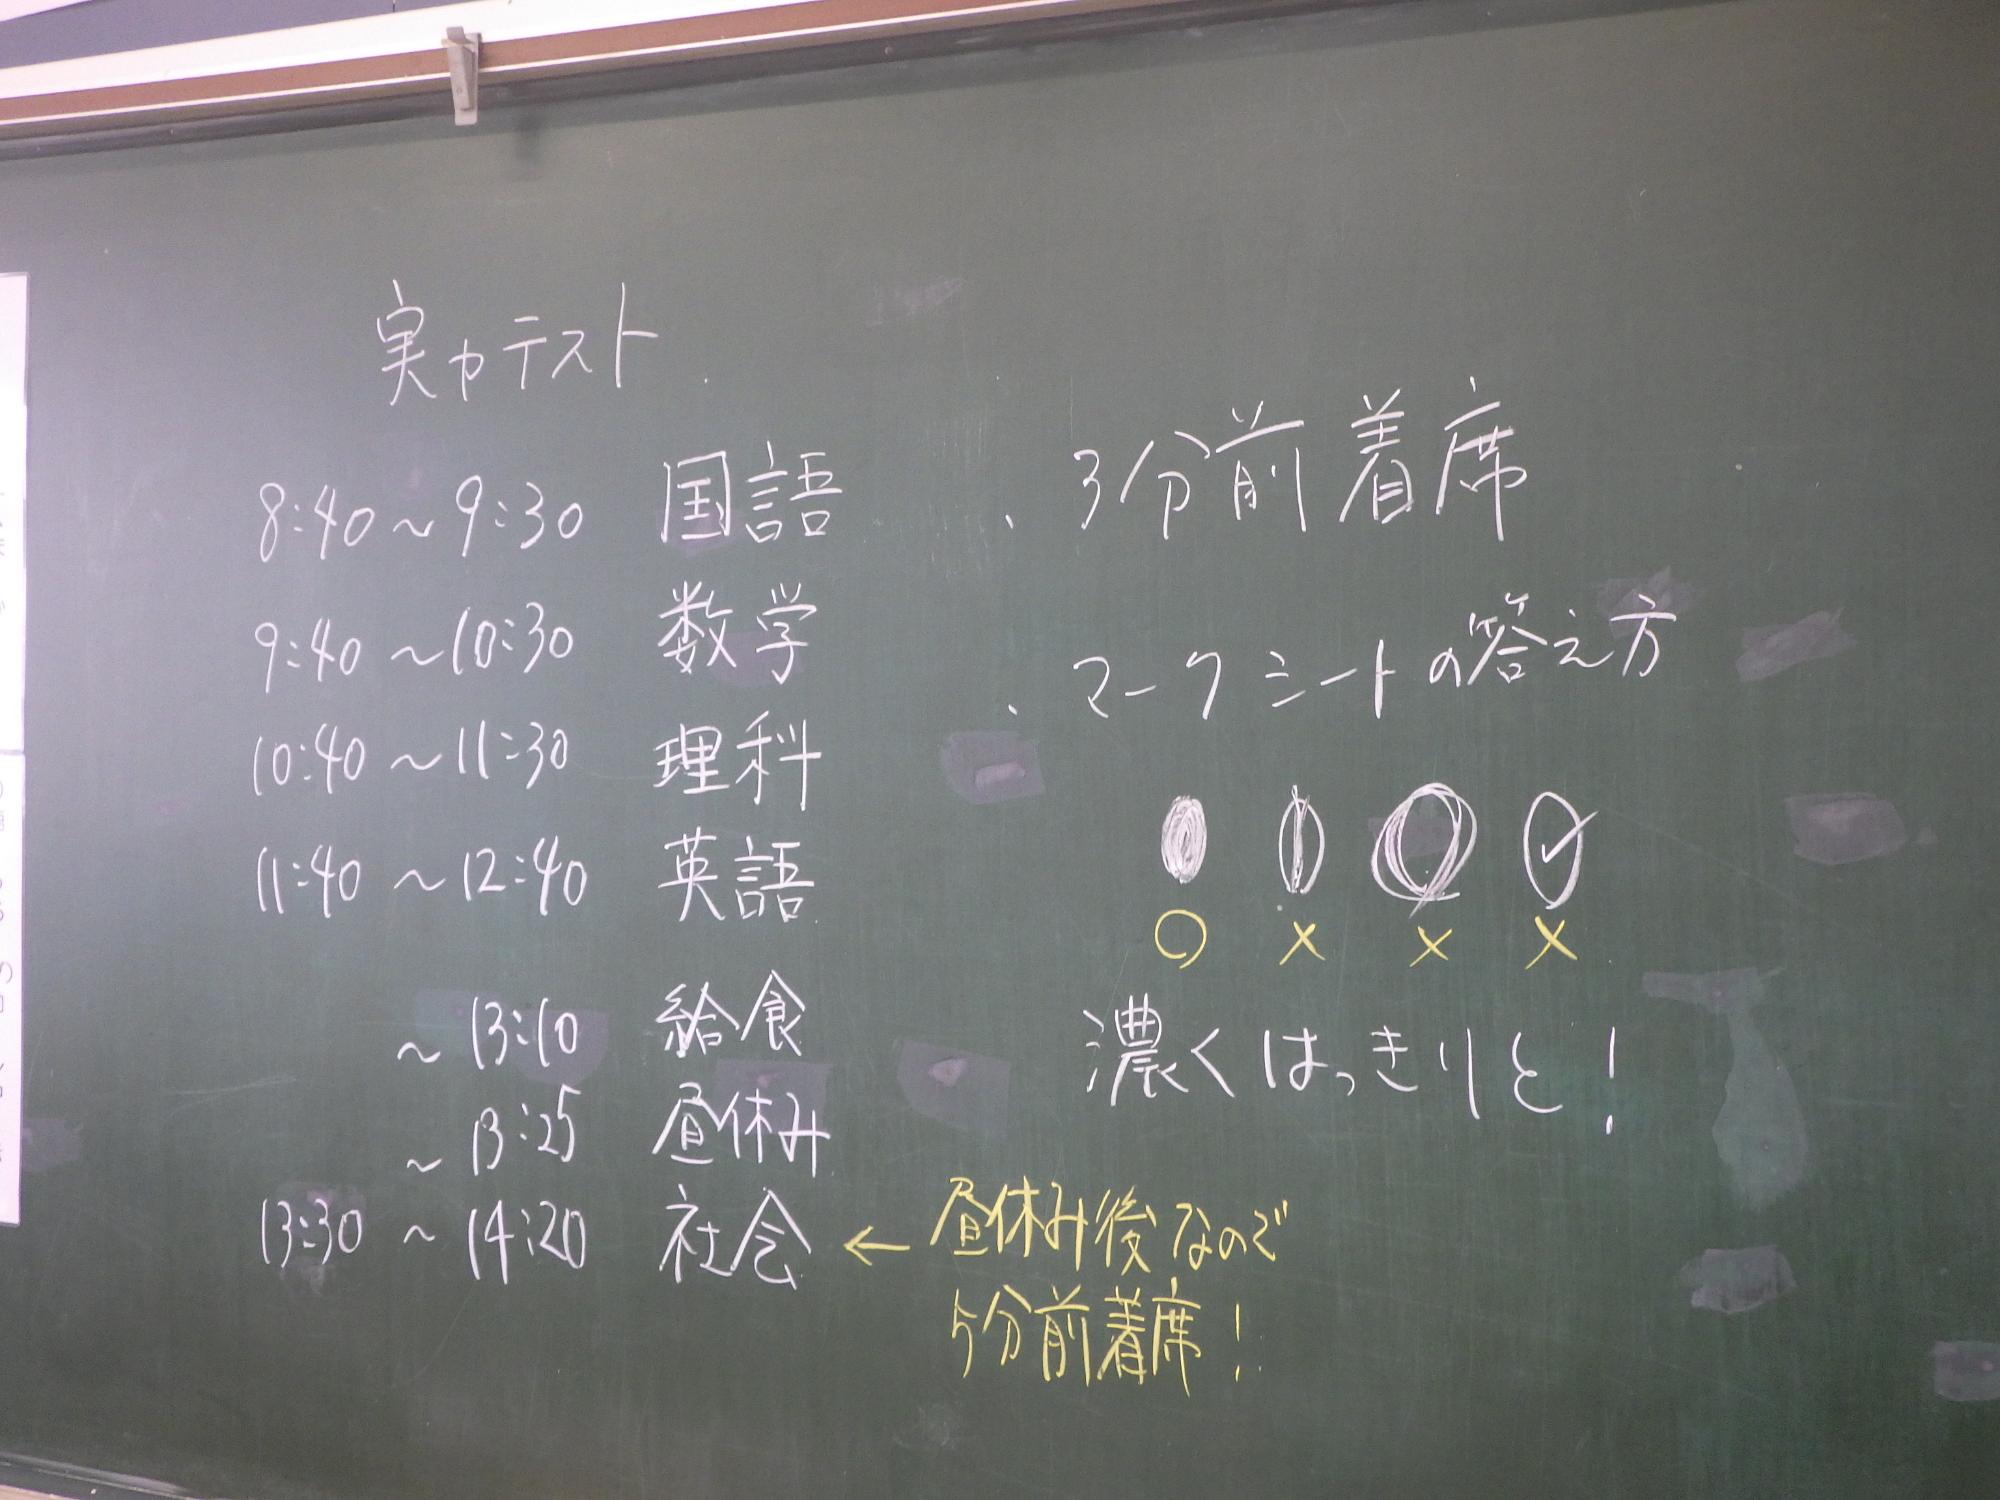 実力テスト
8:40～9:30 国語
9:40～10:30 数学
10:40～11:30 理科
11:40～12:40 英語
～13:10 給食
～13:25 昼休み
13:30～14:20 社会 ← 昼休み後なので
5分前着席!
、3分前着席
、マークシートの答え方
○ × × ×
濃くはっきりと!